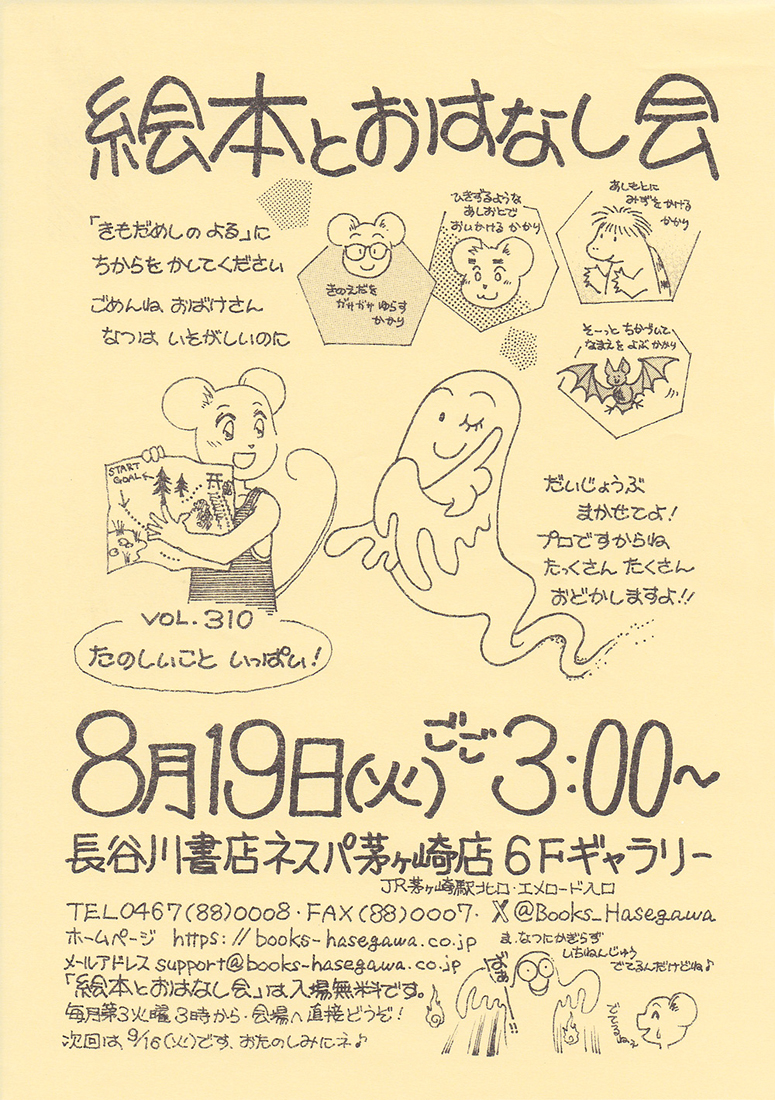 絵本とおはなし会
「きもだめしの よる」に
ちからを かしてください
ごめんね、おばけさん
なつは いそがしいのに
きのえだを
ガサガサ ゆらす
かかり
ひきずるような
あしおとで
おいかける かかり
あしもとに
みずを かける
かかり
そーっと ちかづいて
なまえを よぶ かかり
START
GOAL
だいじょうぶ
まかせてよ!
プロですからね、
たっくさん たくさん
おどかしますよ!!
VOL. 310
たのしいこと いっぱい!
8月19日(火)ごご3:00〜
長谷川書店ネスパ茅ヶ崎店 6Fギャラリー
JR茅ヶ崎駅北口・エメロード入口
TEL0467(88)0008・FAX(88)0007・X@Books_Hasegawa
ホームページ https://books-hasegawa.co.jp
メールアドレス support@books-hasegawa.co.jp
「絵本とおはなし会」は入場無料です。
毎月第3火曜 3時から・会場へ直接どうぞ!
次回は、9/16(火)です、おたのしみにネ♪
ま、なつにかぎらず
いちねんじゅう
でてるんだけどね♪